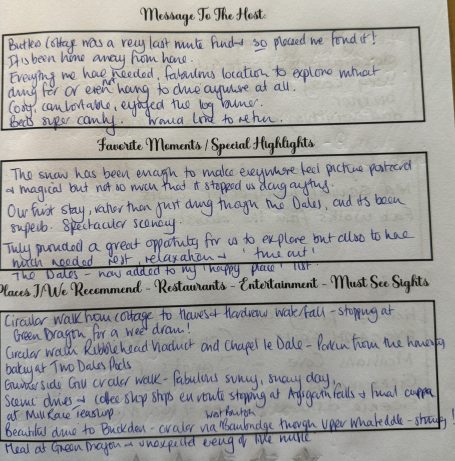 Message To The Host
Butties Cottage was a very last minute find & so pleased we found it!
It's been home away from home.
Everything we have needed, fabulous location to explore without
driving far or even not having to drive anywhere at all.
Cosy, comfortable, enjoyed the log burner.
Beds super comfy. Would love to return.
Favorite Moments / Special Highlights
The snow has been enough to make everywhere feel picture postcard
& magical but not so much that it stopped us doing anything.
Our first stay, rather than just driving through the Dales, and its been
superb. Spectacular scenery.
Truly provided a great opportunity for us to explore but also to have
much needed rest, relaxation & 'time out'
The Dales - now added to my 'happy place' list.
Places I/We Recommend - Restaurants - Entertainment - Must See Sights
Circular walk from cottage to Hawes & Hardraw waterfall - stopping at
Green Dragon for a wee dram!
Circular walk Ribblehead Viaduct and Chapel le Dale - Parkin from the
bakery at Two Dales
Gill circular walk - fabulous sunny, snowy day,
Scenic drives & coffee shop stops en route stopping at Aysgarth Falls & final cuppa
at Mill Race teashop
Beautiful drive to Buckden - circular via West Burton through Upper - stunning!
Meal at Green Dragon & unexpected evening of live music